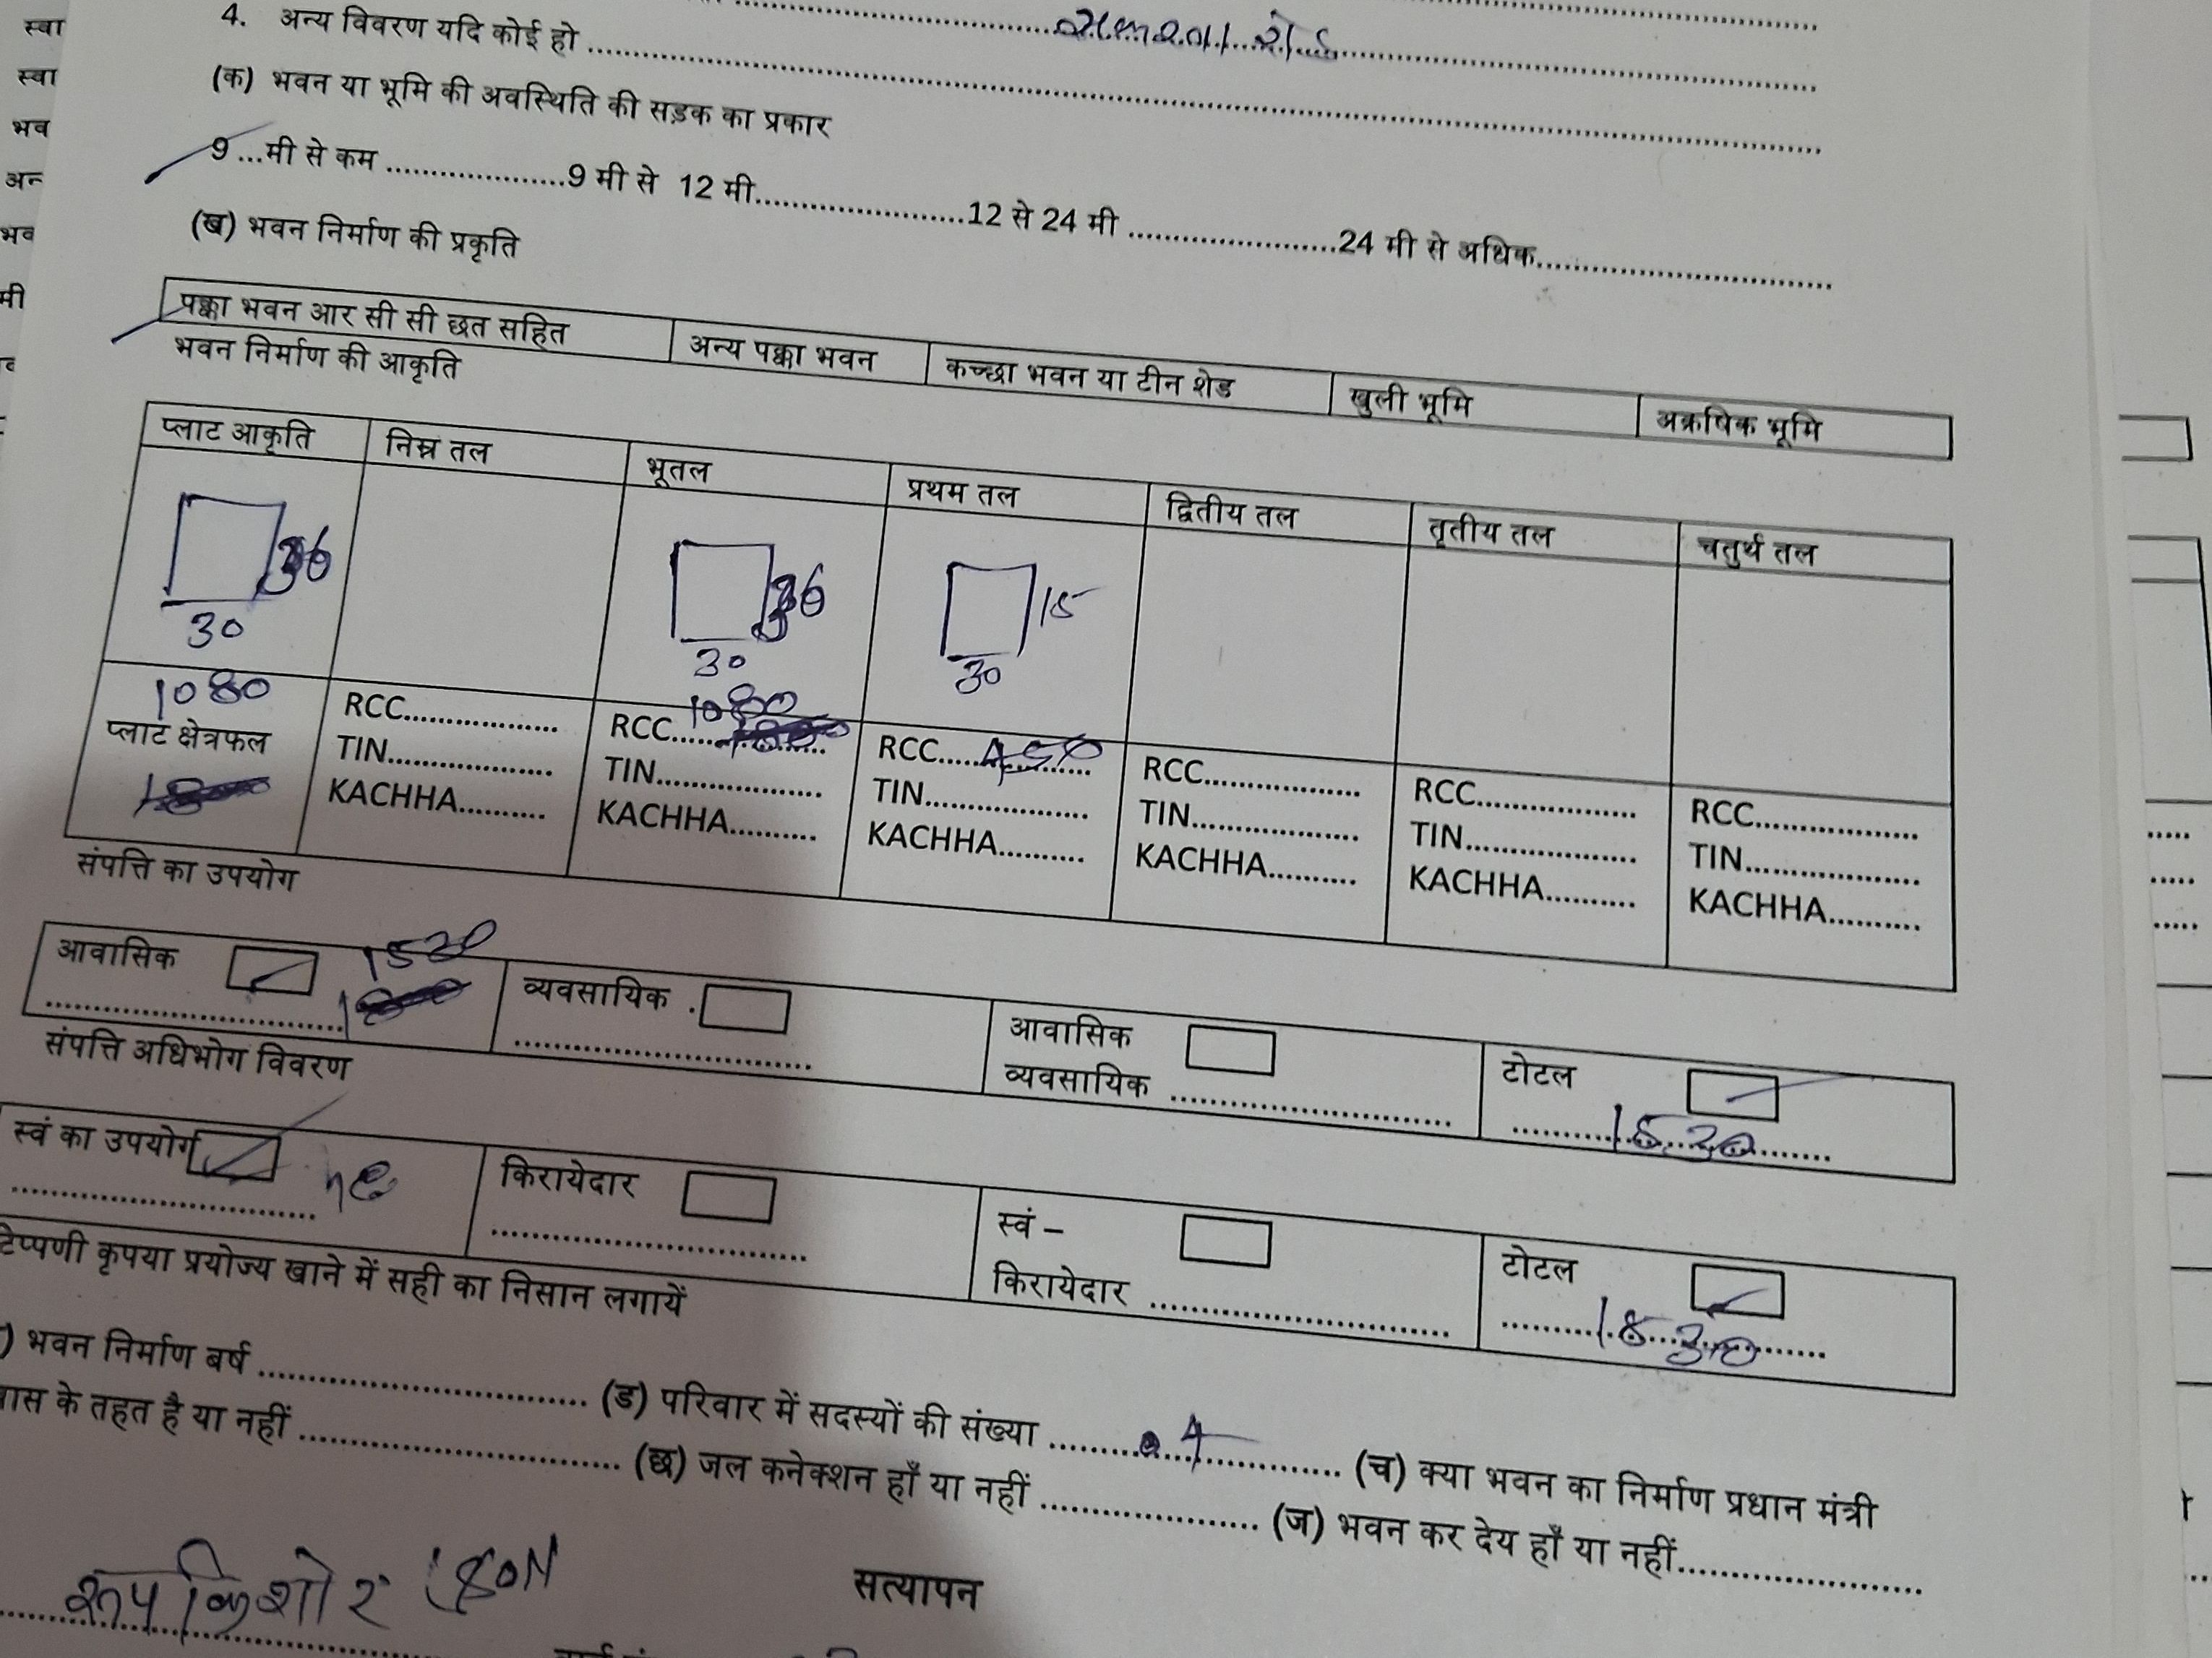 4. अन्य विवरण यदि कोई हो
(क) भवन या भूमि की अवस्थिति की सड़क का प्रकार
9...मी से कम ....................9 मी से 12 मी.......................12 से 24 मी .......................24 मी से अधिक.................................
(ख) भवन निर्माण की प्रकृति
पक्का भवन आर सी सी छत सहित अन्य पक्का भवन कच्छा भवन या टीन शेड खुली भूमि अक्रषिक भूमि
भवन निर्माण की आकृति
प्लाट आकृति निम्न तल भूतल प्रथम तल द्वितीय तल तृतीय तल चतुर्थ तल
36 36 15
30 30 30
1080 RCC................. RCC 1080 RCC 450 RCC................. RCC................. RCC..................
प्लाट क्षेत्रफल TIN.................. TIN.................. TIN.................. TIN.................. TIN.................. TIN...................
KACHHA.......... KACHHA.......... KACHHA.......... KACHHA.......... KACHHA.......... KACHHA..........
संपत्ति का उपयोग
आवासिक 1530 व्यवसायिक . आवासिक व्यवसायिक .............................. टोटल 1530
संपत्ति अधिभोग विवरण
स्वं का उपयोग किरायेदार स्वं – किरायेदार ................................ टोटल 1530
टिप्पणी कृपया प्रयोज्य खाने में सही का निसान लगायें
) भवन निर्माण बर्ष .................................. (ड) परिवार में सदस्यों की संख्या 4 (च) क्या भवन का निर्माण प्रधान मंत्री
वास के तहत है या नहीं .................................. (छ) जल कनेक्शन हाँ या नहीं ...................... (ज) भवन कर देय हाँ या नहीं.........................
सत्यापन
रूप किशोर
स्वा
स्वा
भव
अन
भव
मी